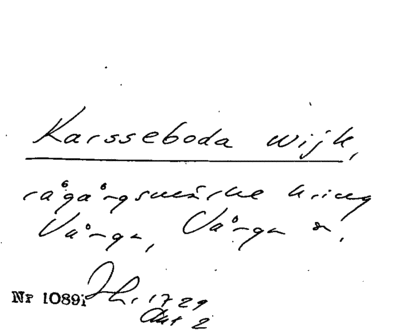 Karsseboda wijk,
rågångsmärke kring
Vånga, Vånga sn.
Nr 1089i Jh. 1729
Akt 2